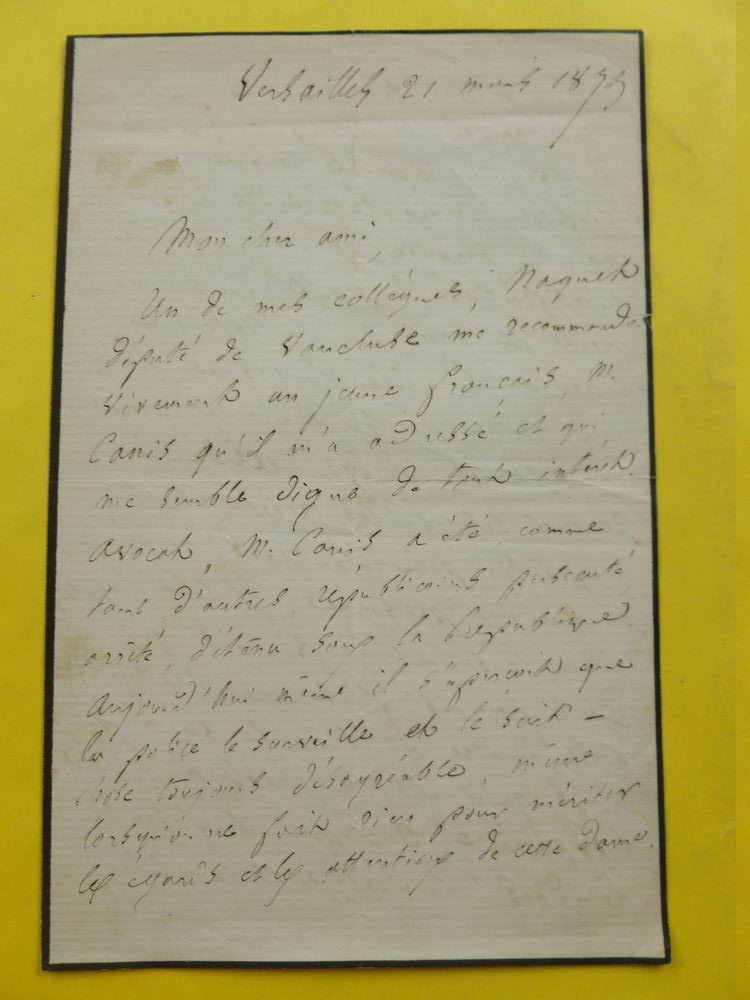 Versailles 21 mars 1873
Mon cher ami,
Un de mes collègues, Naquet
député de Vaucluse me recommande
vivement un jeune français, M.
Canis qu'il m'a adressé et qui
me semble digne de tout intérêt.
Avocat, M. Canis a été, comme
tant d'autres républicains persécuté,
arrêté, détenu sous la République.
Aujourd'hui même il s'aperçoit que
la police le surveille et le suit –
chose toujours désagréable, même
lorsqu'on ne fait rien pour mériter
les égards et les attentions de cette dame.